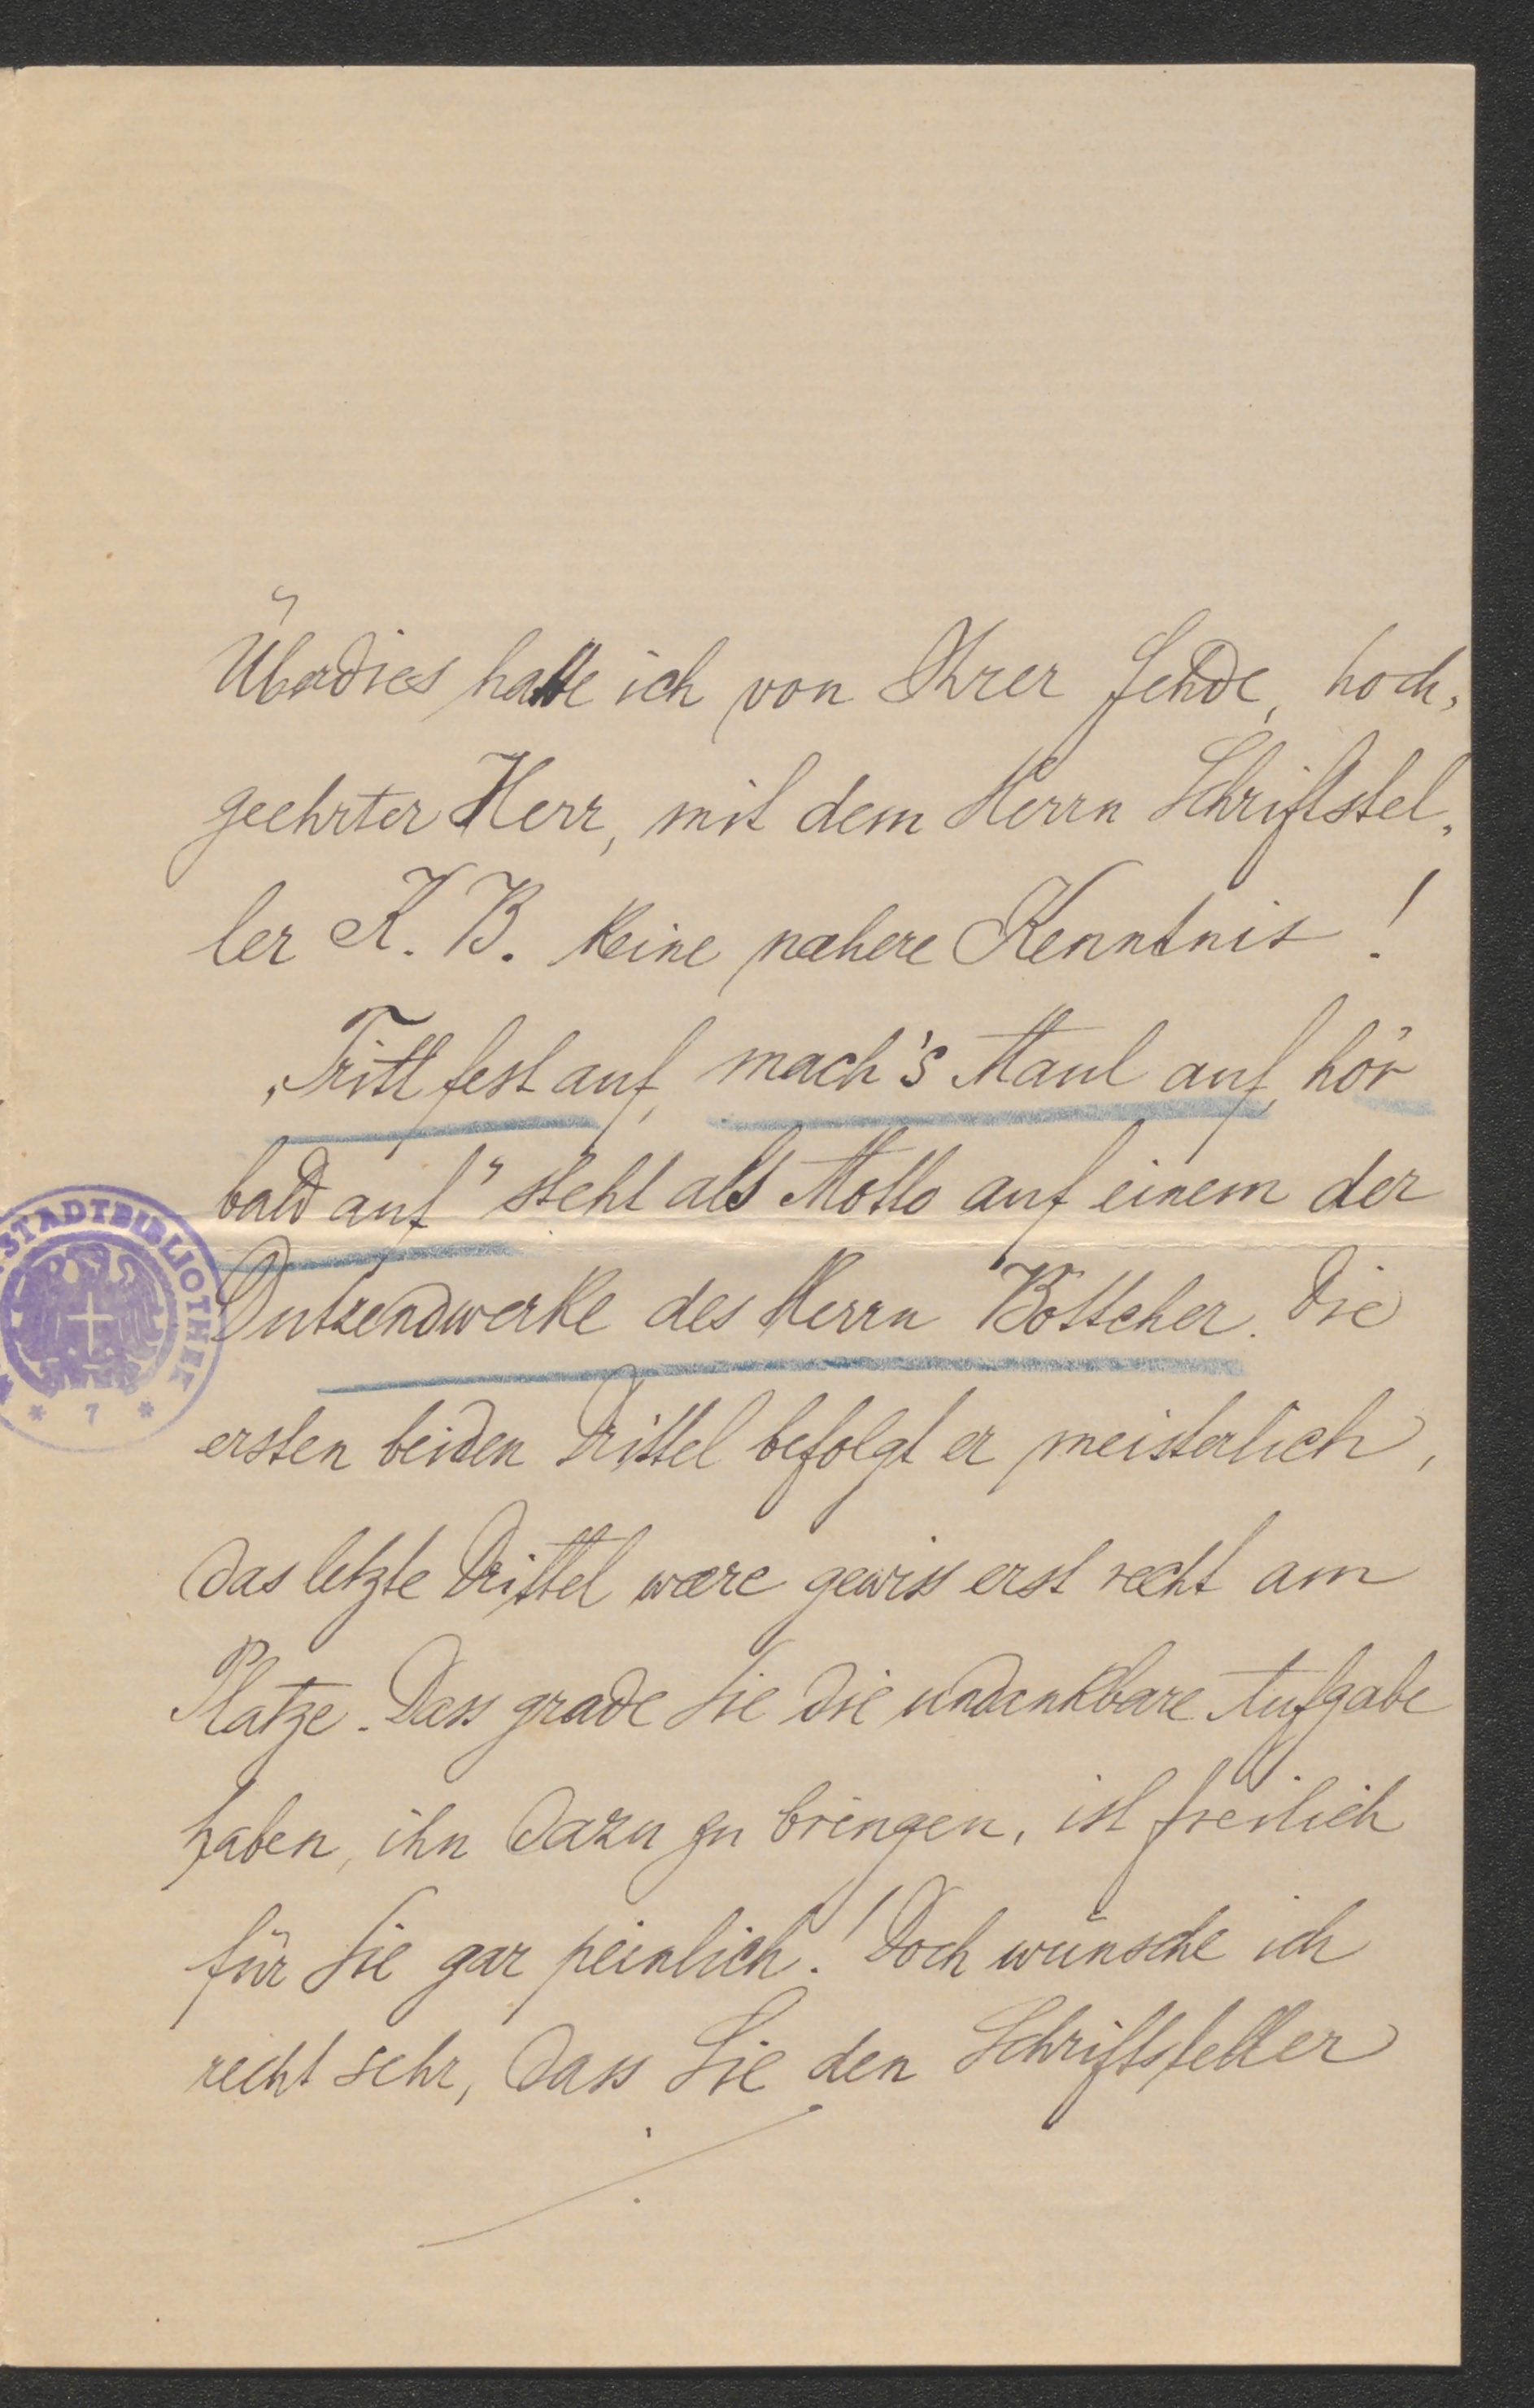 Überdies hatte ich von Ihrer Fehde, hoch,
geehrter Herr, mit dem Herrn Schriftstel,
ler K. B. keine næhere Kenntnis!
„Tritt fest auf, mach's Maul auf, hör
bald auf" steht als Motto auf einem der
STADTBIBLIOTHEK
* 7 *
Dutzendwerke des Herrn Böttcher. Die
ersten beiden Drittel befolgt er meisterlich,
das letzte Drittel wære gewiss erst recht am
Platze. Dass grade Sie die undankbare Aufgabe
haben, ihn dazu zu bringen, ist freilich
für Sie gar peinlich! Doch wünsche ich
recht sehr, dass Sie den Schriftsteller